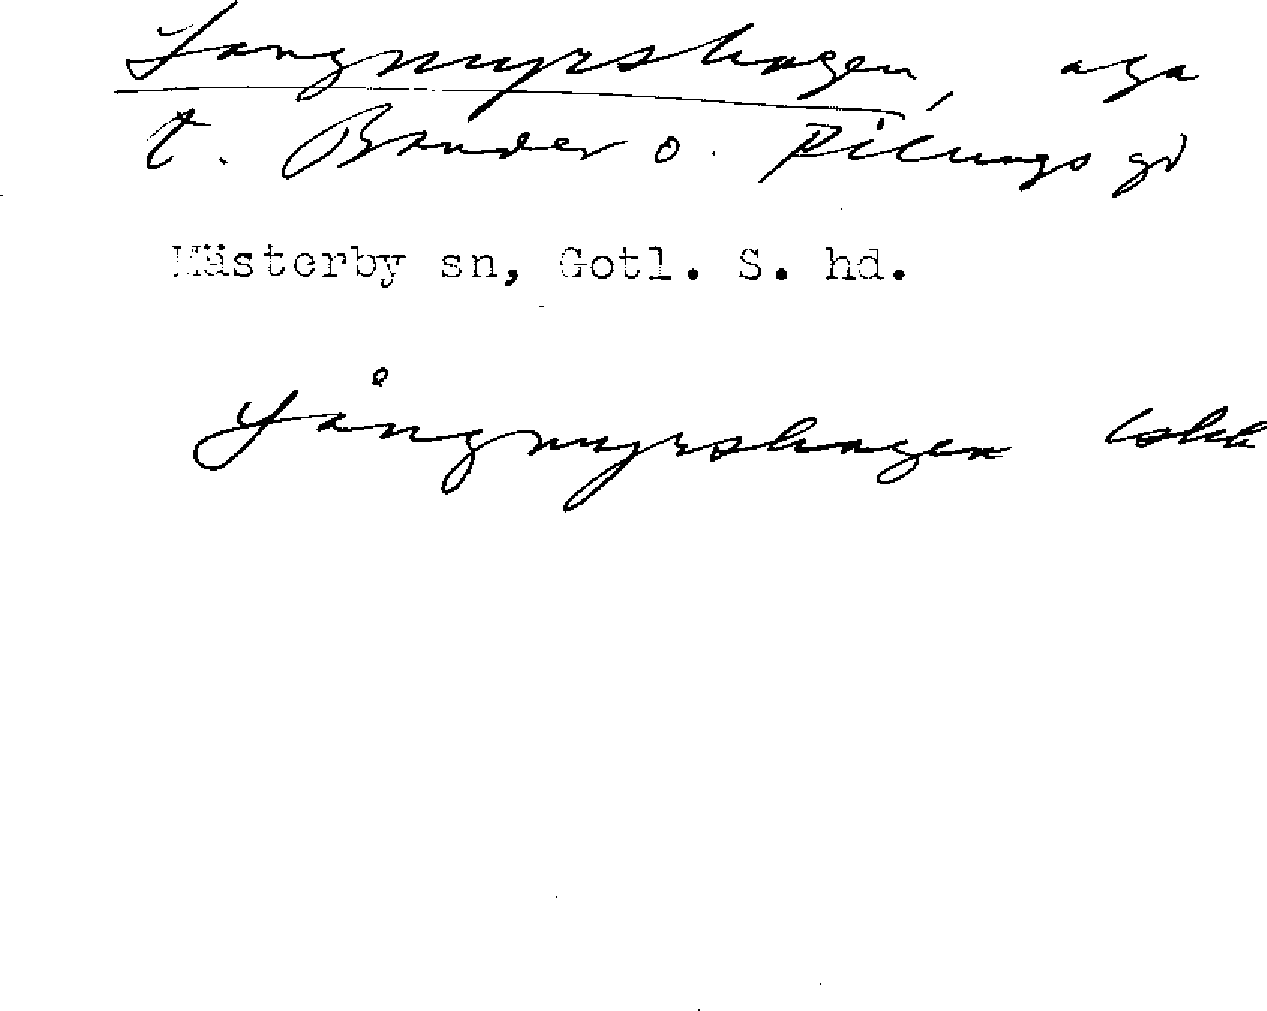 Langmyrshagen, äga
t. Bander o. Rilungs gd
Mästerby sn, Gotl. S. hd.
Långmyrshagen